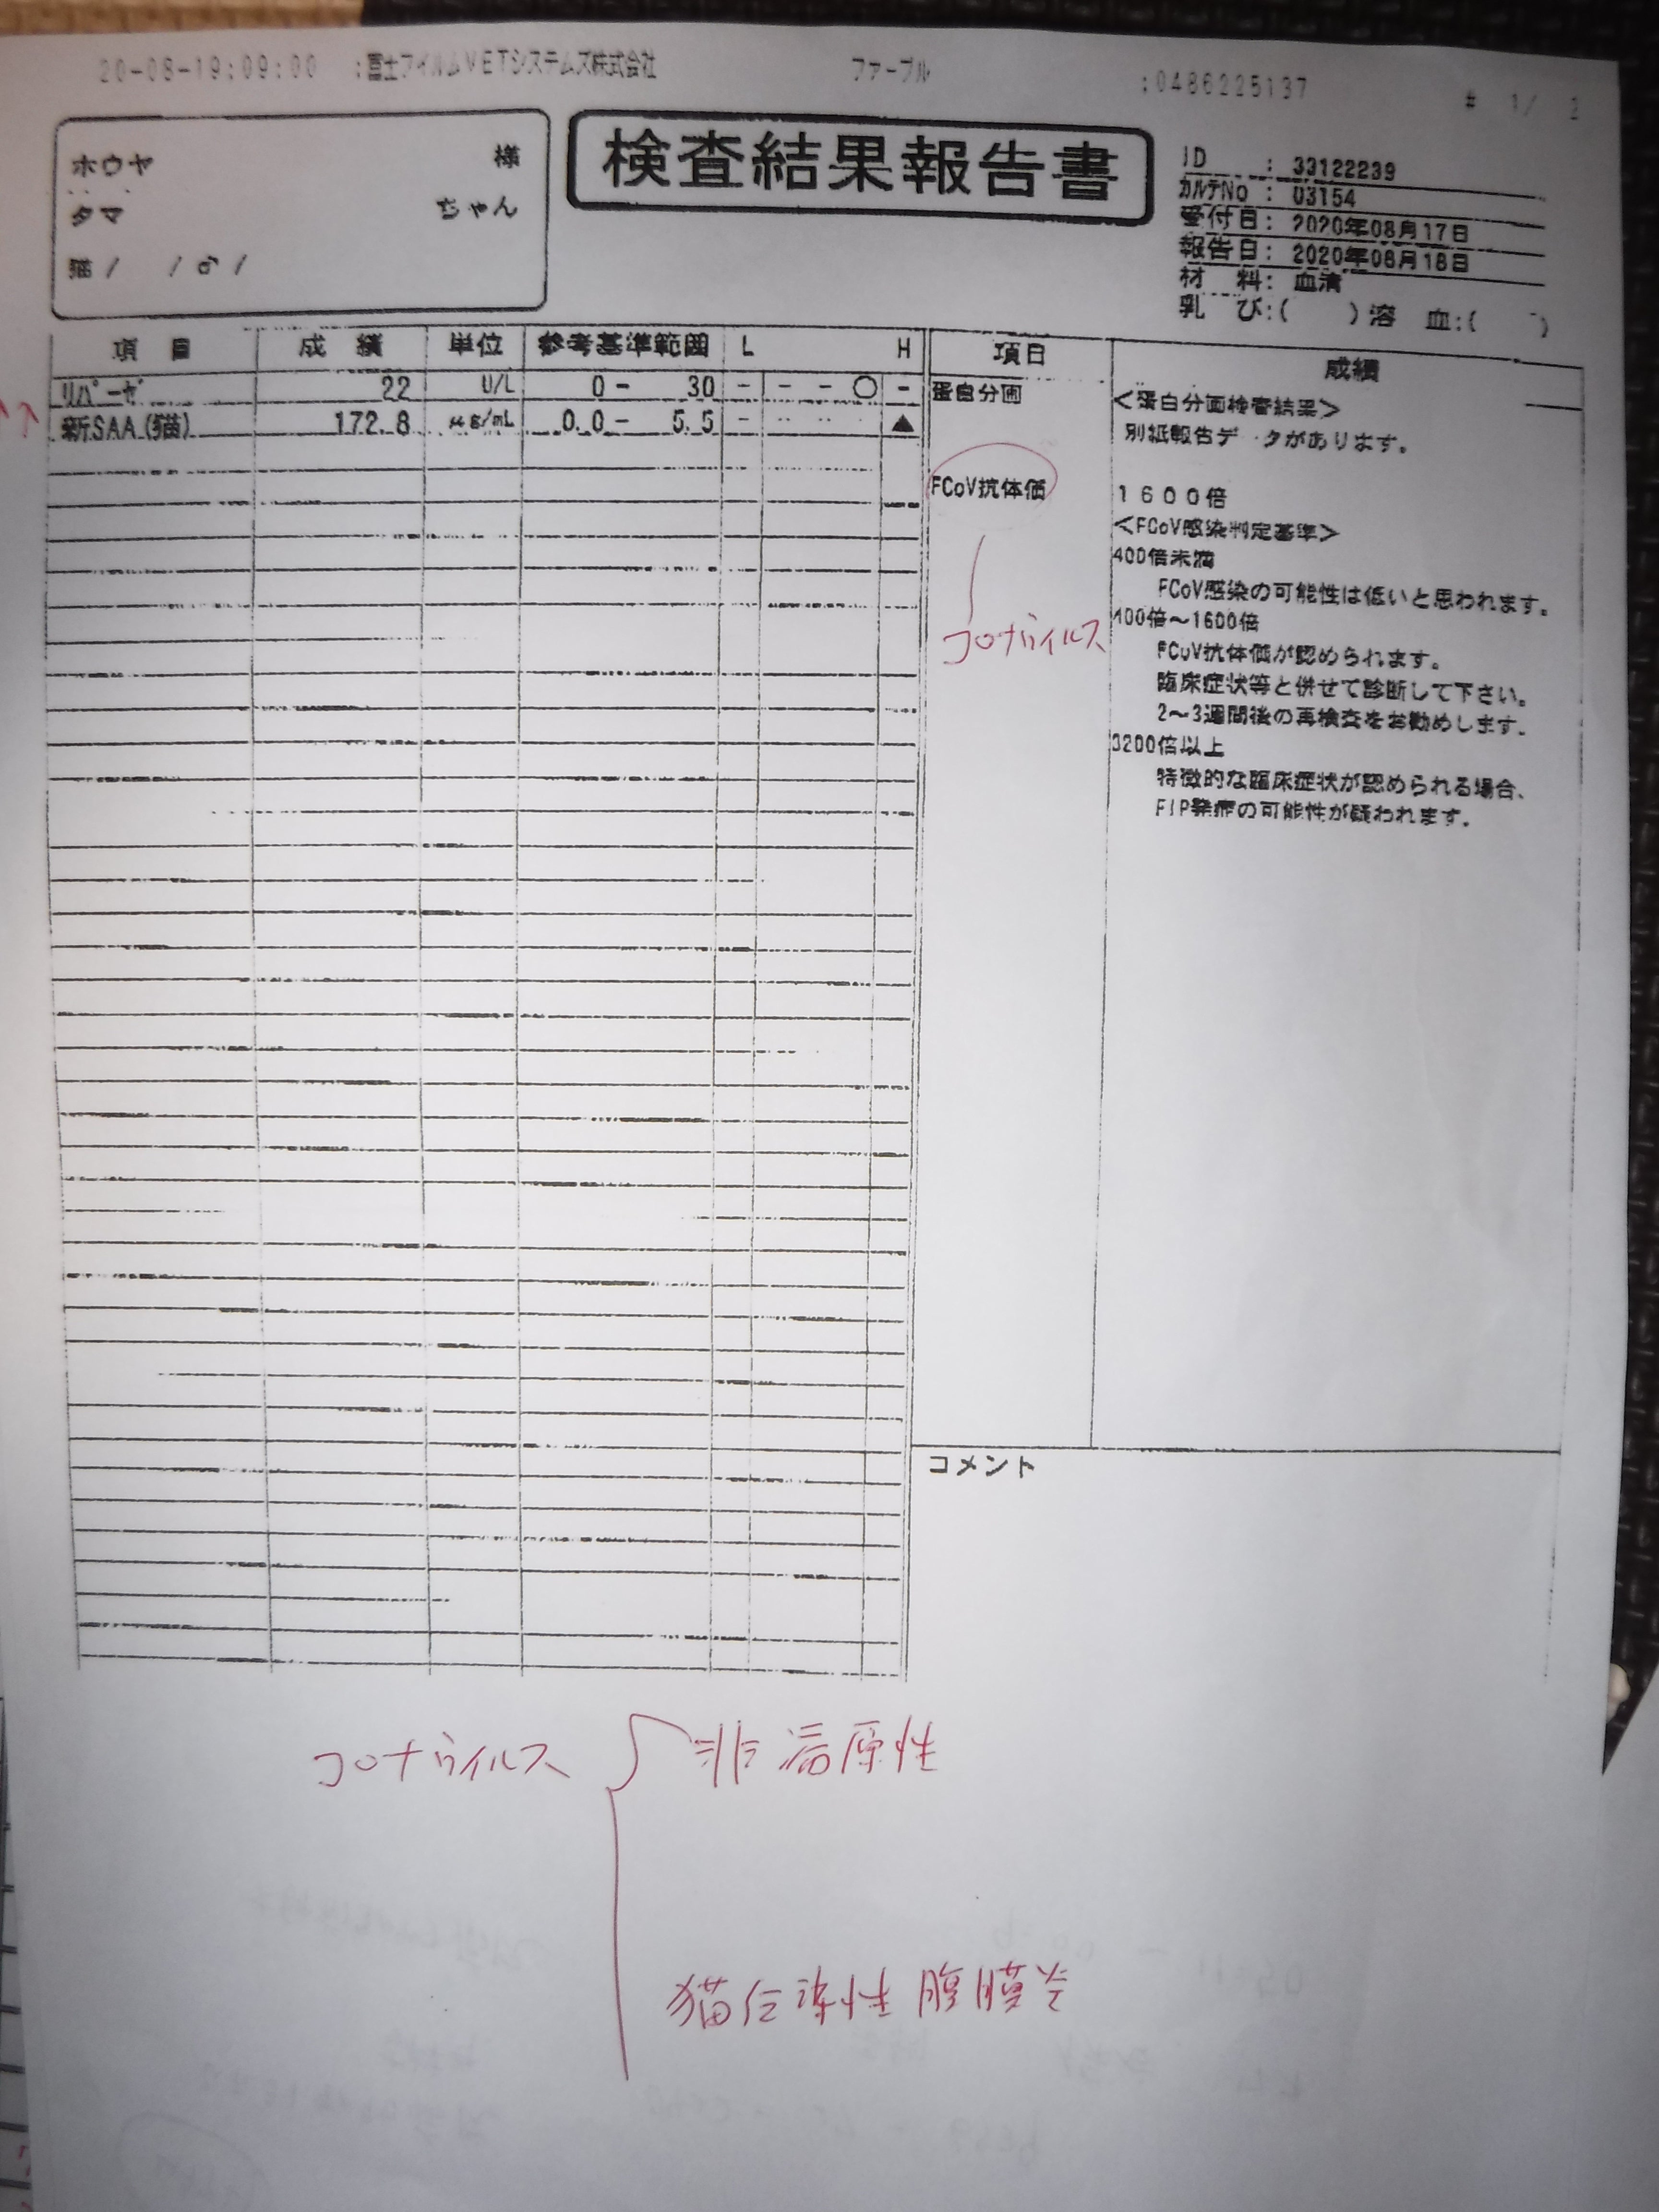 20-08-19;09:00 ;富士フイルムVETシステムズ株式会社 ファーブル ;0486225137 # 1/ 2
ホウヤ 様
タマ ちゃん
猫/ /♂/
検査結果報告書
ID : 33122239
カルテNo : 03154
受付日: 2020年08月17日
報告日: 2020年08月18日
材 料: 血清
乳 び:( ) 溶 血:( -)
項 目 成 績 単位 参考基準範囲 L H
リパーゼ 22 U/L 0- 30 - - - ○ -
新SAA(猫) 172.8 μg/mL 0.0- 5.5 - ▲
↑↑
項目 成績
蛋白分画 <蛋白分画検査結果>
別紙報告データがあります。
FCoV抗体価 1600倍
<FCoV感染判定基準>
400倍未満
FCoV感染の可能性は低いと思われます。
400倍~1600倍
FCoV抗体価が認められます。
臨床症状等と併せて診断して下さい。
2~3週間後の再検査をお勧めします。
3200倍以上
特徴的な臨床症状が認められる場合、
FIP発症の可能性が疑われます。
コロナウイルス
コメント
コロナウイルス 非病原性
猫伝染性腹膜炎